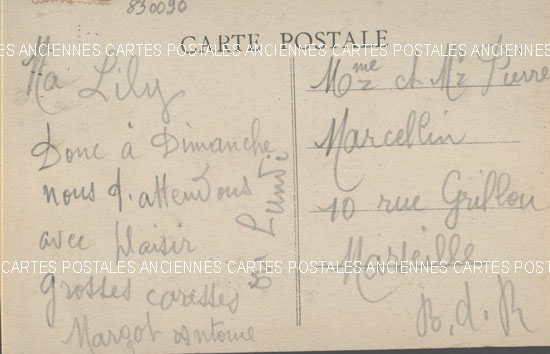 830090
CARTE POSTALE
CARTES POSTALES ANCIENNES CARTES POSTALES ANCIENNES CARTES POSTALES ANCIENNES
Ma Lily
Donc à Dimanche
nous t'attendons
avec plaisir
Grosses caresses
Margot Antoine
ou Lundi
Mme et Mr Pierre
Marcellin
10 rue Grillon
Marseille
CARTES POSTALES ANCIENNES CARTES POSTALES ANCIENNES CARTES POSTALES ANCIENNES
B.d.R